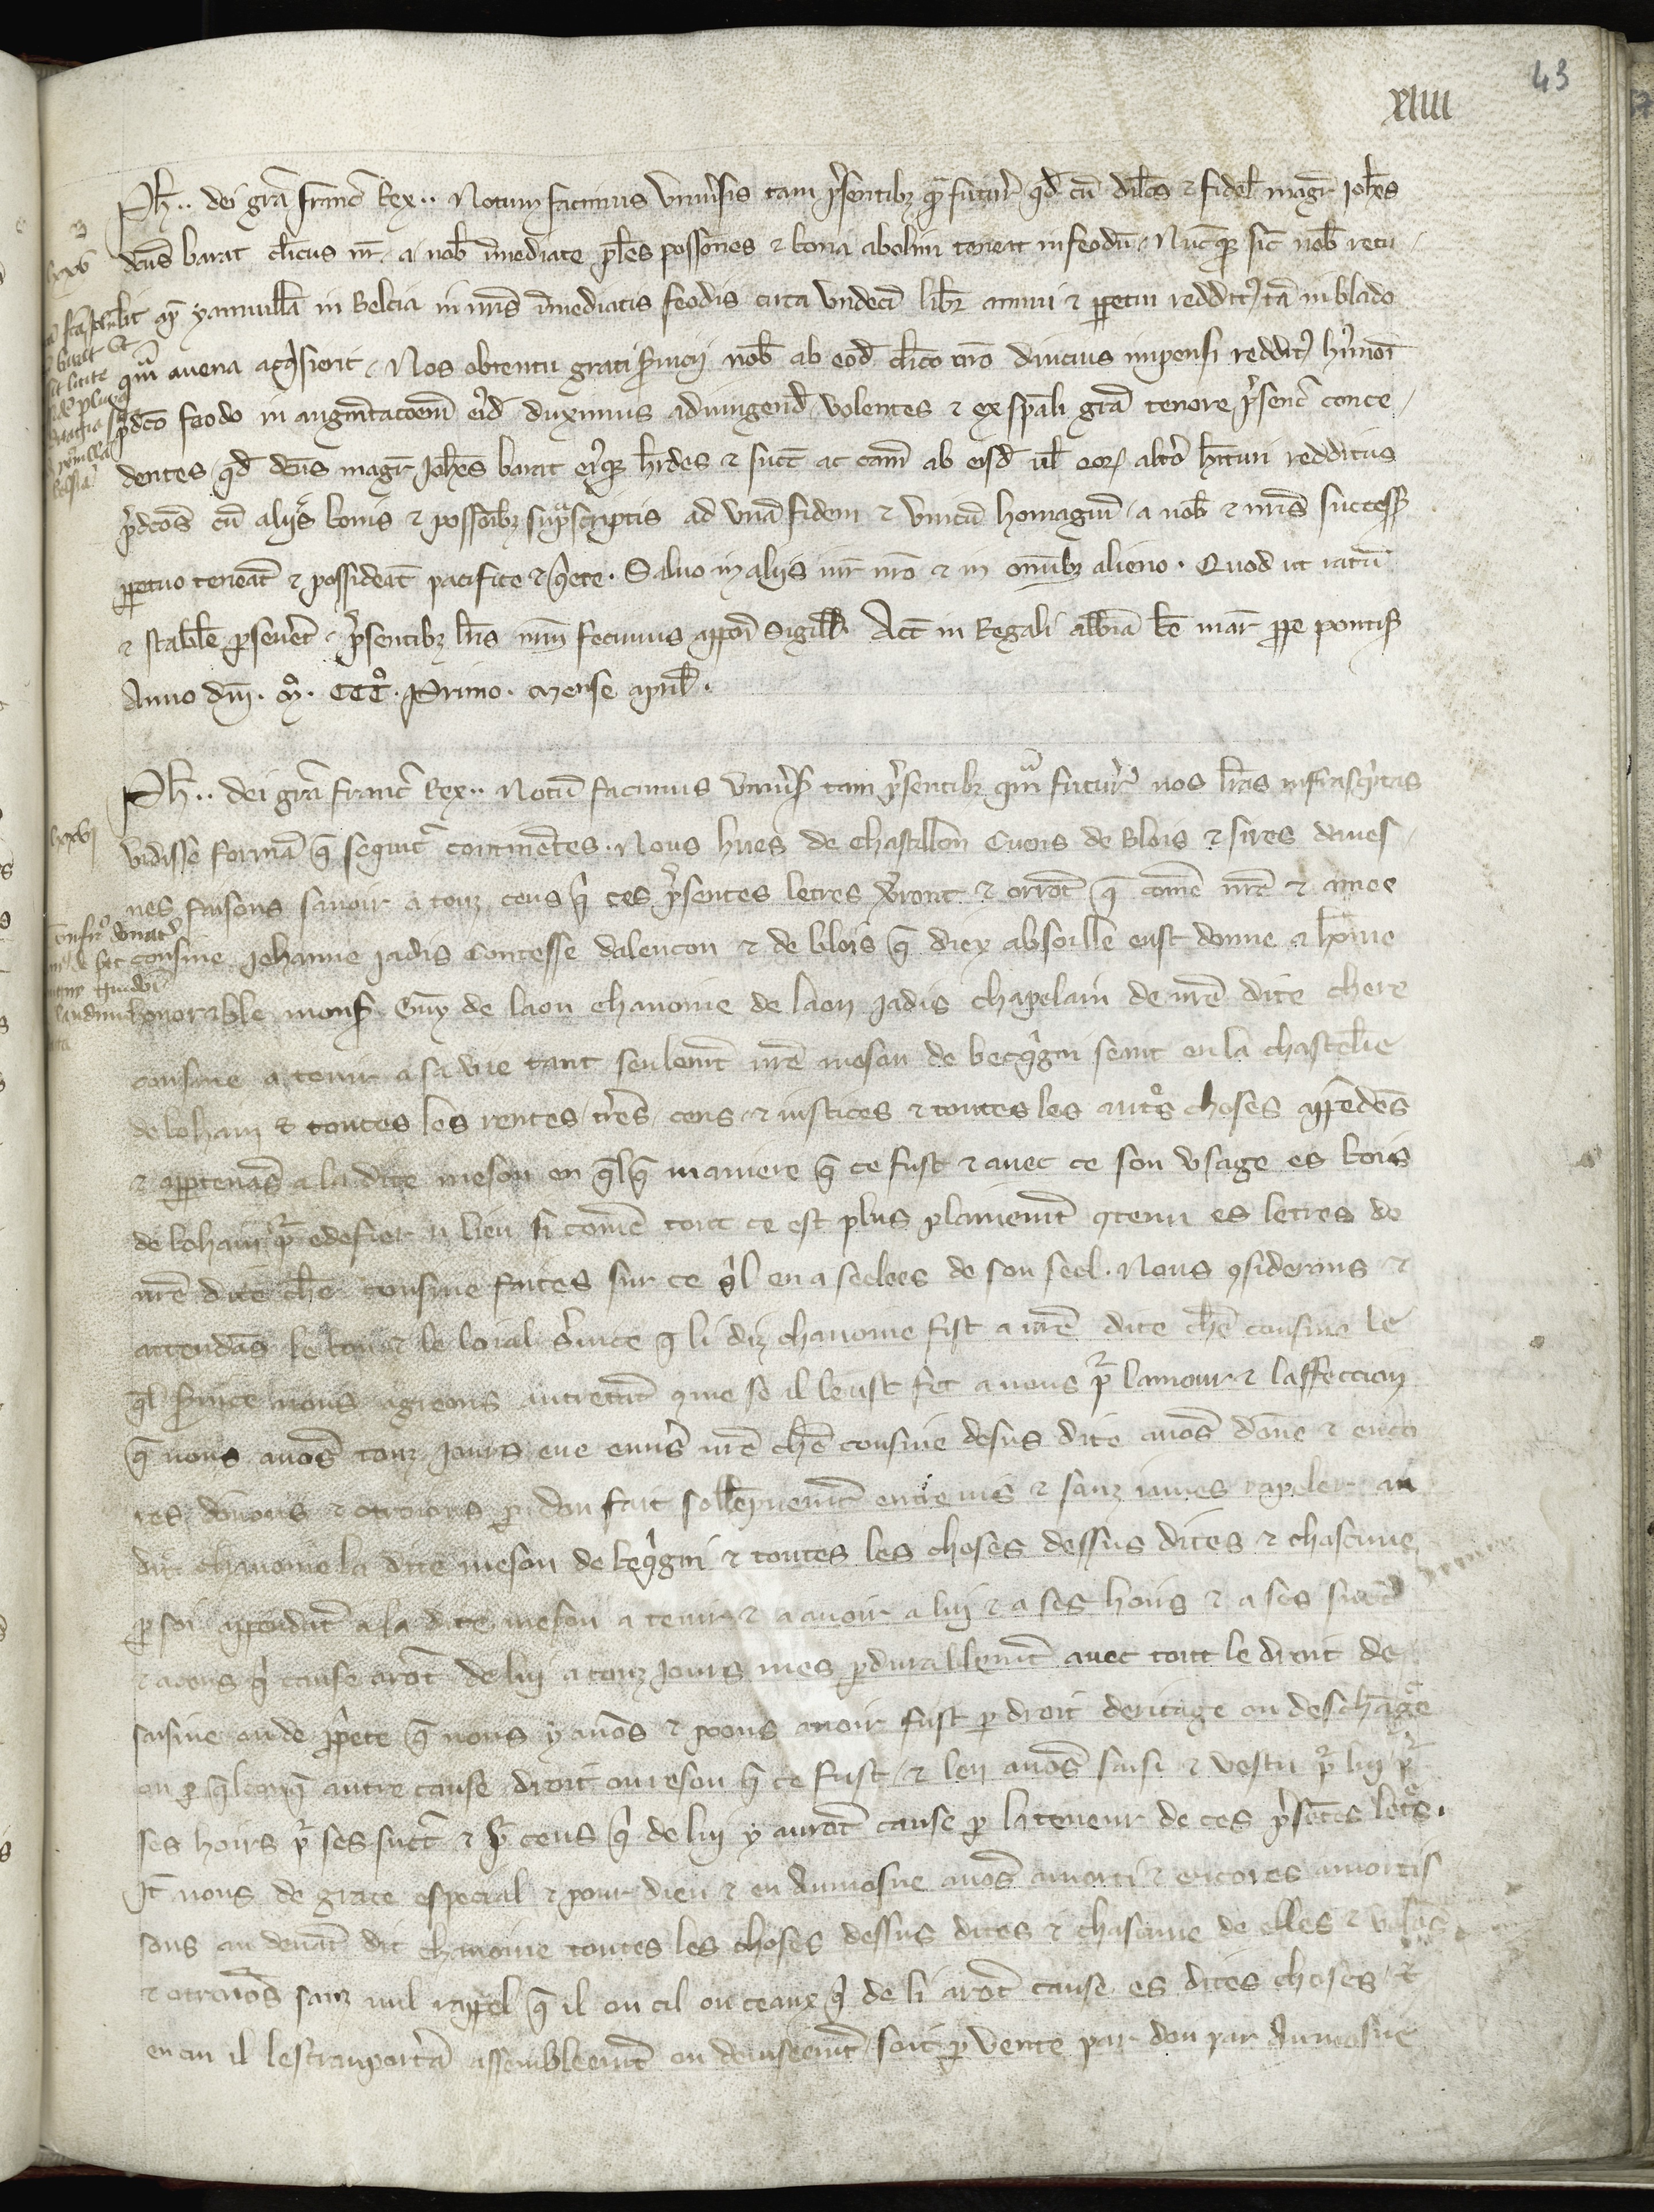 43
xiiii
Ph̅ .. dei gra̅ franc̅ Rex .. Notum facimus vniu̅sis tam p̅sentibꝫ qua̅ futur̅ qd̅ cu̅ dil̅cs ⁊ fidel̅ magr̅ Ioh̅es
dc̅us barat cl̅icus nr̅ a nob̅ inmediate pl̅es possio̅nes ⁊ bona abolim teneat in feodu̅ Nu̅cqꝫ sic nob̅ retu
lit ap̅ yamuill̅a in Belcia in nr̅is inmediatis feodis circa vndeci̅ libr̅ annui ⁊ ꝑpetui redditꝰ ta̅ in blado
qm̅ auena acqisierit Nos obtentu grati s̅uicij nob̅ ab eod̅ cl̅ico nr̅o diucius impensi redditꝰ hꝰmo̅i
p̅dc̅o feodo in augm̅tac̅oem eiꝰd̅ duximus adiungend̅ volentes ⁊ ex spāli gra̅ tenore p̅senc̅ conce
dentes qd̅ dc̅us magr̅ Ioh̅es barat eiꝰqꝫ h̅rdes ⁊ succ̅ ac cam̅ ab eisd̅ ul̅ eoꝝ alt̅o h̅ituri redditus
p̅dc̅os cu̅ aliis bonis ⁊ possio̅ibꝫ sup̅ascriptis ad vna̅ fidem ⁊ vnicu̅ homagiu̅ a nob̅ ⁊ nr̅is success̅
ꝑpetuo tenea̅t ⁊ possidea̅t pacifice ⁊ q̅iete . Saluo in aliis iur̅ nr̅o ⁊ in om̅ibꝫ alieno . Quod ut ratu̅
⁊ stabile ꝑseuet̅ p̅sentibꝫ lr̅is nr̅m fecimus appo̅i Sigill̅ . Act̅ in Regali abb̅ia be̅ mar̅ ꝓpe pontis̅
Anno dn̅i . mº . CCCº . Primo . mense april̅ .
Ph̅ .. dei gra̅ franc̅ Rex .. Notu̅ facimus vniu̅s̅ tam p̅sentibꝫ qm̅ futur̅ nos lr̅as infrasc̅ptas
vidisse forma̅ q̅ sequit̅ contine̅tes . Nous hues de Chastillon Cuens de Blois ⁊ sires dauef
nes faisons sauoir a touz ceus q̅ ces p̅sentes letres v̅ront ⁊ orro̅t q̅ co̅me nr̅e ⁊ amee
cousine Iehanne iadis Contesse dalencon ⁊ de blois q̅ diex absoille eust donne a ho̅me
honorable mons̅ Guy de laon chanoine de laon iadis chapelain de nr̅e dite chere
cousine a tenir a sa vie tant seulem̅t nr̅e meson de becq̅gni seant en la chastel̅ie
de bohain ⁊ toutes les rentes tr̅es cens ⁊ iustices ⁊ toutes les autrs̅ choses appe̅de̅s
⁊ appartena̅s a la dite meson en q̅lq̅ maniere q̅ ce fust ⁊ auec ce son vsage es bois
de bohain p̅r edefier u lieu si co̅me tout ce est plus plainem̅t ꝯtenu es letres de
nr̅e dite ch̅e cousine faites sur ce q̅l en a seelees de son seel . Nous ꝯsiderans ⁊
attenda̅s le bon ⁊ le loial s̅uice q̅ li diz chanoine fist a nr̅e dite ch̅e cousine le
q̅l s̅uice nous agreons autreta̅t ꝯme se il leust fet a nous p̅r lamour ⁊ laffeccion
q̅ nous auo̅s touz iours eue enu̅s nr̅e ch̅e cousine desus dite auo̅s do̅ne ⁊ enco
res donons ⁊ otroions ꝑ don fait sollempnem̅t entre uis ⁊ sanz iames rapeler au
dit chanoine la dite meson de beq̅gni ⁊ toutes les choses dessus dites ⁊ chascune
ꝑ soi appenda̅t a la dite meson a tenir ⁊ a auoir a lui ⁊ a ses hoirs ⁊ a ses succ̅
⁊ a ceus q̅ cause aro̅t de lui a touz iours mes ꝑdurallem̅t auec tout le droit de
saisine ou de ꝓp̅ete q̅ nous y auo̅s ⁊ poons auoir fust ꝑ droit deritage ou descha̅ge
ou ꝑ q̅lconq̅ autre cause droit ou reson q̅ ce fust ⁊ len auo̅s saisi ⁊ vestu p̅r lui p̅r
ses hoirs p̅r ses succ̅ ⁊ p̅r ceus q̅ de lui y auro̅t cause ꝑ la teneur de ces p̅se̅tes let̅s .
It̅ nous de grace especial ⁊ pour dieu ⁊ en Aumosne auo̅s amorti ⁊ encores amortis
sons au deua̅t dit chanoine toutes les choses dessus dites ⁊ chascune de elles ⁊ volo̅s
⁊ otroio̅s sanz nul rappel q̅ il ou cil ou ceaux q̅ de li aro̅t cause es dites choses ⁊
en cui il lestransport̅a assembleem̅t ou deuiseem̅t soit ꝑ vente par don par Aumosne